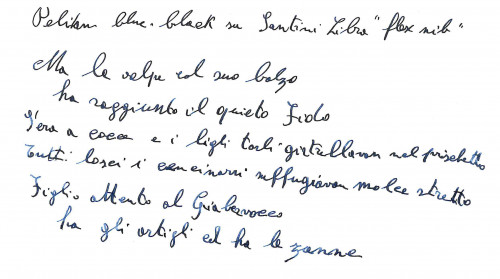 Pelikan blue-black su Santini Libra "flex nib"
Ma la volpe col suo balzo
ha raggiunto il quieto Fido
S'era a cocce e i ligli tarli girtrellavan nel pischetto
Tutti losci i cincinarri suffuggiavan molce stretto
Figlio attento al Giaberwocco
ha gli artigli ed ha le zanne